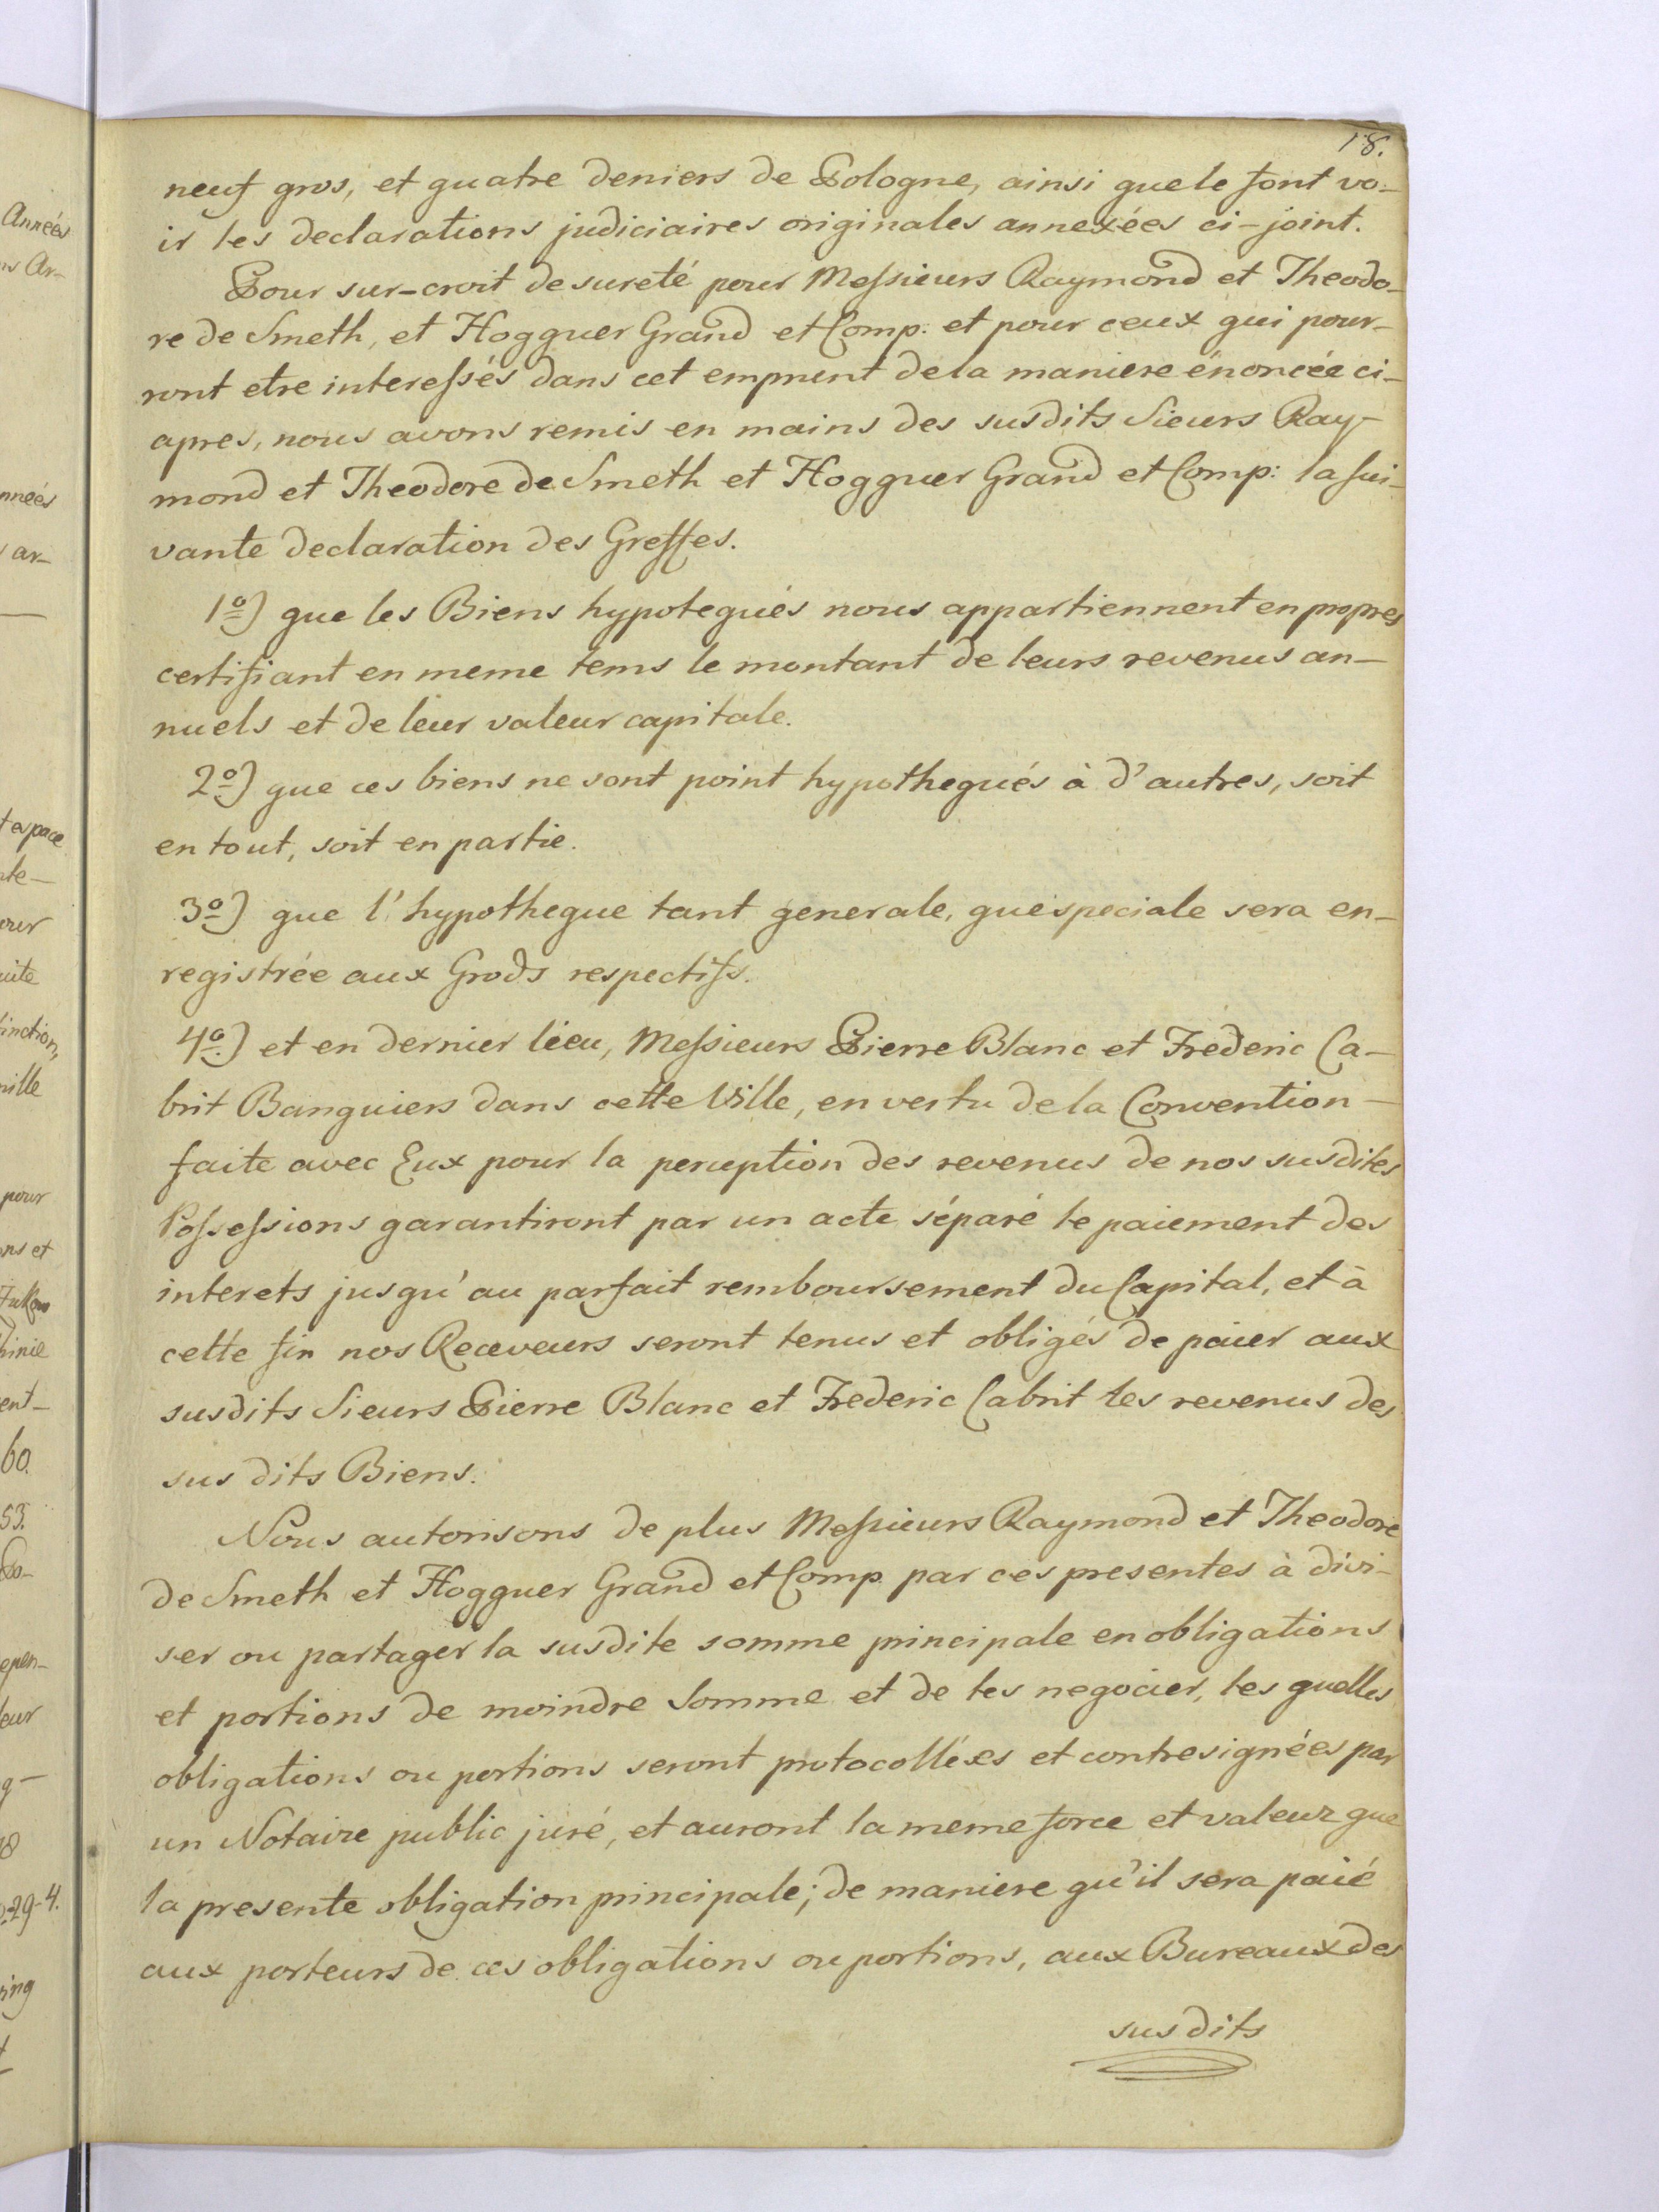 18.
neuf gros, et quatre deniers de Pologne, ainsi que le font vo-
ir les declarations judiciaires originales annexées ci-joint.
Pour sur-croit de sureté pour Messieurs Raymond et Theodo-
re de Smeth, et Hogguer Grand et Comp: et pour ceux qui pour-
ront etre interessés dans cet emprunt de la maniere énoncée ci-
apres, nous avons remis en mains des susdits Sieurs Ray-
mond et Theodore de Smeth et Hogguer Grand et Comp: la sui-
vante declaration des Greffes.
1º) que les Biens hypotequés nous appartiennent en propres
certifiant en meme tems le montant de leurs revenus an-
nuels et de leur valeur capitale.
2º) que ces biens ne sont point hypothequés à d'autres, soit
en tout, soit en partie.
3º) que l'hypotheque tant generale, que speciale sera en-
registrée aux Grods respectifs.
4º) et en dernier lieu, Messieurs Pierre Blanc et Frederic Ca-
brit Banquiers dans cette Ville, en vertu de la Convention-
faite avec Eux pour la perception des revenus de nos susdites
Possessions garantiront par un acte séparé le paiement des
interets jusqu'au parfait remboursement du Capital, et à
cette fin nos Receveurs seront tenus et obligés de paier aux
susdits Sieurs Pierre Blanc et Frederic Cabrit les revenus des
sus dits Biens.
Nous autorisons de plus Messieurs Raymond et Theodore
de Smeth et Hogguer Grand et Comp. par ces presentes à divi-
ser ou partager la susdite somme principale en obligations
et portions de moindre Somme et de les negocier, les quelles
obligations ou portions seront protocollées et contresignées par
un Notaire public juré, et auront la meme force et valeur que
la presente obligation principale; de maniere qu'il sera paié
aux porteurs de ces obligations ou portions, aux Bureaux des
sus dits